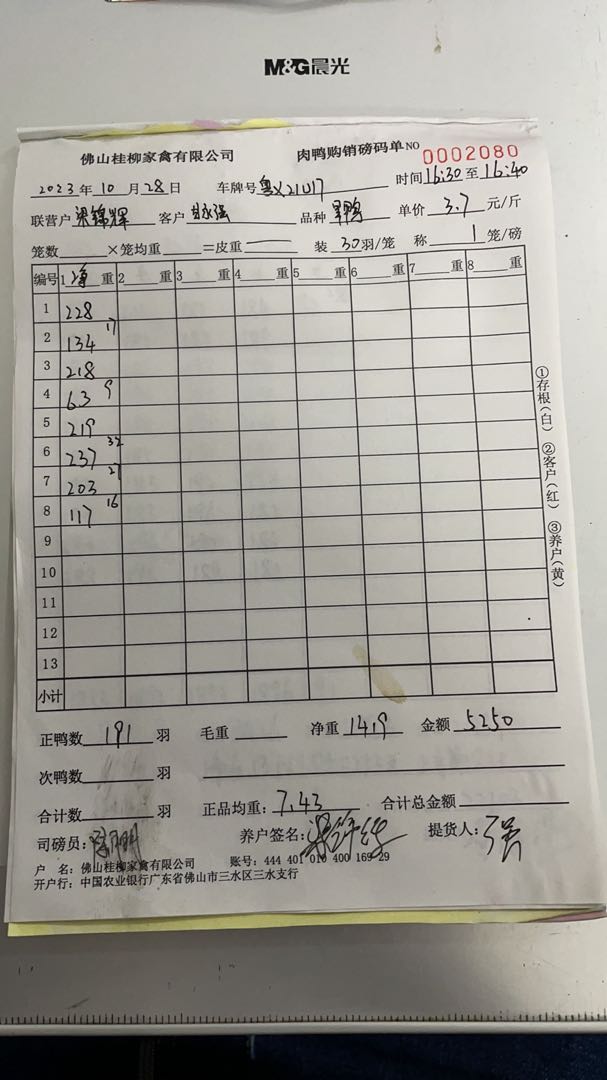 M&G晨光
佛山桂柳家禽有限公司 肉鸭购销磅码单 NO 0002080
2023年10月28日 车牌号粤X21U17 时间16:30至16:40
联营户梁锦辉 客户 永强 品种 鸭 单价3.7元/斤
笼数 ×笼均重 =皮重 装30羽/笼 称1笼/磅
编号 1净重 2 重 3 重 4 重 5 重 6 重 7 重 8 重
1 228
2 134 17
3 218
4 63 9
5 219
6 237 32
7 203 27
8 117 16
9
10
11
12
13
小计
①存根(白) ②客户(红) ③养户(黄)
正鸭数191羽 毛重 净重1419 金额5250
次鸭数 羽
合计数 羽 正品均重:7.43 合计总金额
司磅员: 养户签名: 提货人:强
户 名:佛山桂柳家禽有限公司 账号:444 401 010 400 169 29
开户行:中国农业银行广东省佛山市三水区三水支行